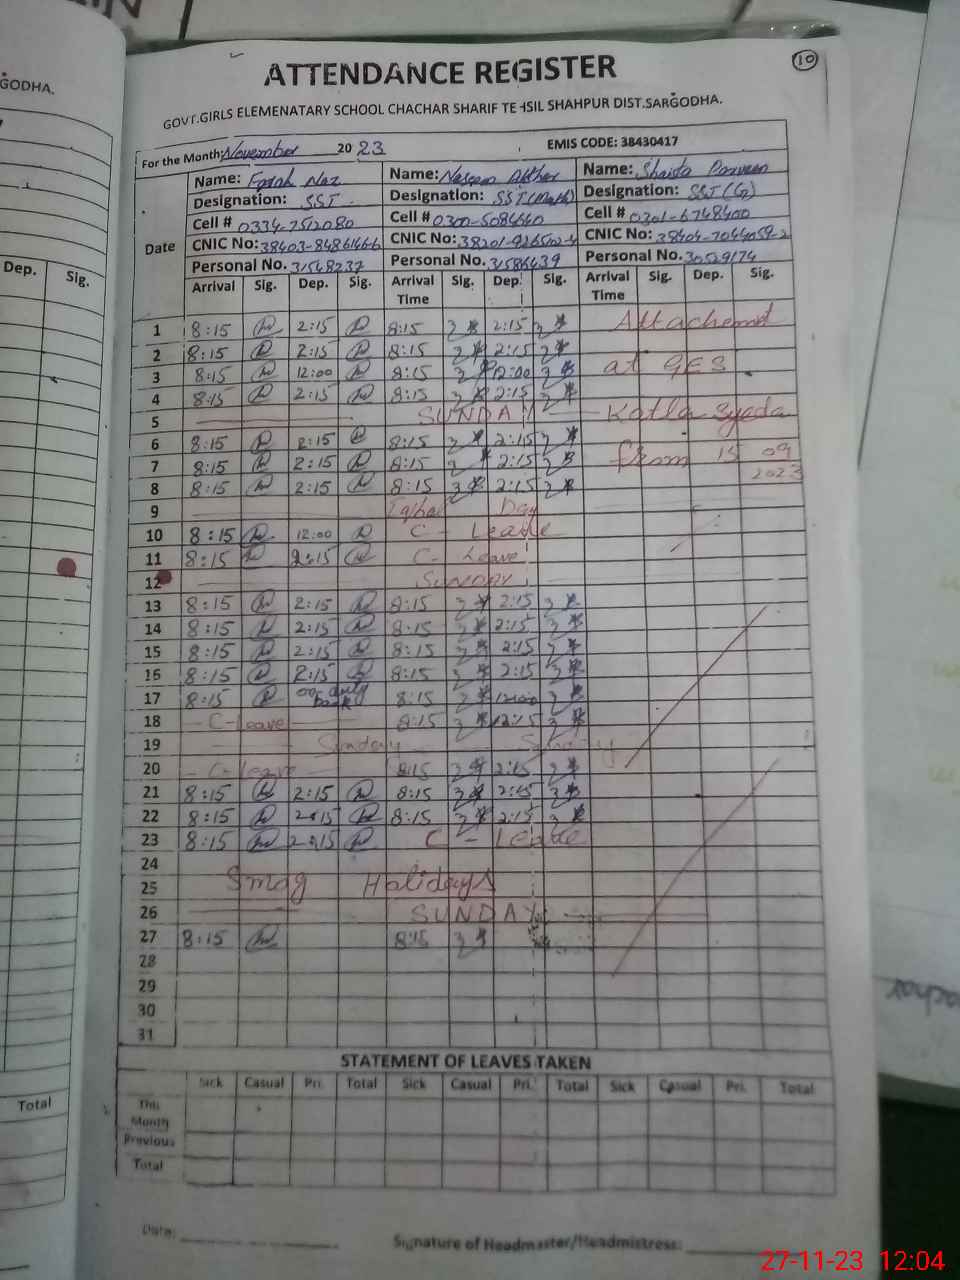 GODHA.
Dep. Sig.
Total
10
ATTENDANCE REGISTER
GOVT.GIRLS ELEMENATARY SCHOOL CHACHAR SHARIF TEHSIL SHAHPUR DIST.SARGODHA.
For the Month: November 2023 EMIS CODE: 38430417
Name: Farah Naz Name: Naseem Akhtar Name: Shaista Parveen
Designation: SST Designation: SST (Math) Designation: SST (G)
Cell # 0334-7512080 Cell # 0300-5084640 Cell # 0301-6748400
CNIC No: CNIC No: CNIC No:
Personal No. 31548237 Personal No. 31586439 Personal No. 30529174
Date Arrival Sig. Dep. Sig. Arrival Time Sig. Dep. Sig. Arrival Time Sig. Dep. Sig.
1 8:15 2:15 8:15 2:15 Attachemnt
2 8:15 2:15 8:15 2:15
3 8:15 12:00 8:15 12:00 at GES
4 8:15 2:15 8:15 2:15
5 SUNDAY Kotla Syeda
6 8:15 2:15 8:15 2:15
7 8:15 2:15 8:15 2:15 from 15 09
8 8:15 2:15 8:15 2:15 2023
9 Iqbal Day
10 8:15 12:00 C - Leave
11 8:15 2:15 C - Leave
12 SUNDAY
13 8:15 2:15 8:15 2:15
14 8:15 2:15 8:15 2:15
15 8:15 2:15 8:15 2:15
16 8:15 2:15 8:15 2:15
17 8:15 8:15 12:00
18 C-Leave 8:15 2:15
19 Sunday Sunday
20 C-leave 8:15 2:15
21 8:15 2:15 8:15 2:15
22 8:15 2:15 8:15 2:15
23 8:15 2:15 C - Leave
24
25 Smog Holidays
26 SUNDAY
27 8:15 8:15
28
29
30
31
STATEMENT OF LEAVES TAKEN
Sick Casual Pri. Total Sick Casual Pri. Total Sick Casual Pri. Total
This Month
Previous
Total
Date:
Signature of Headmaster/Headmistress:
27-11-23 12:04